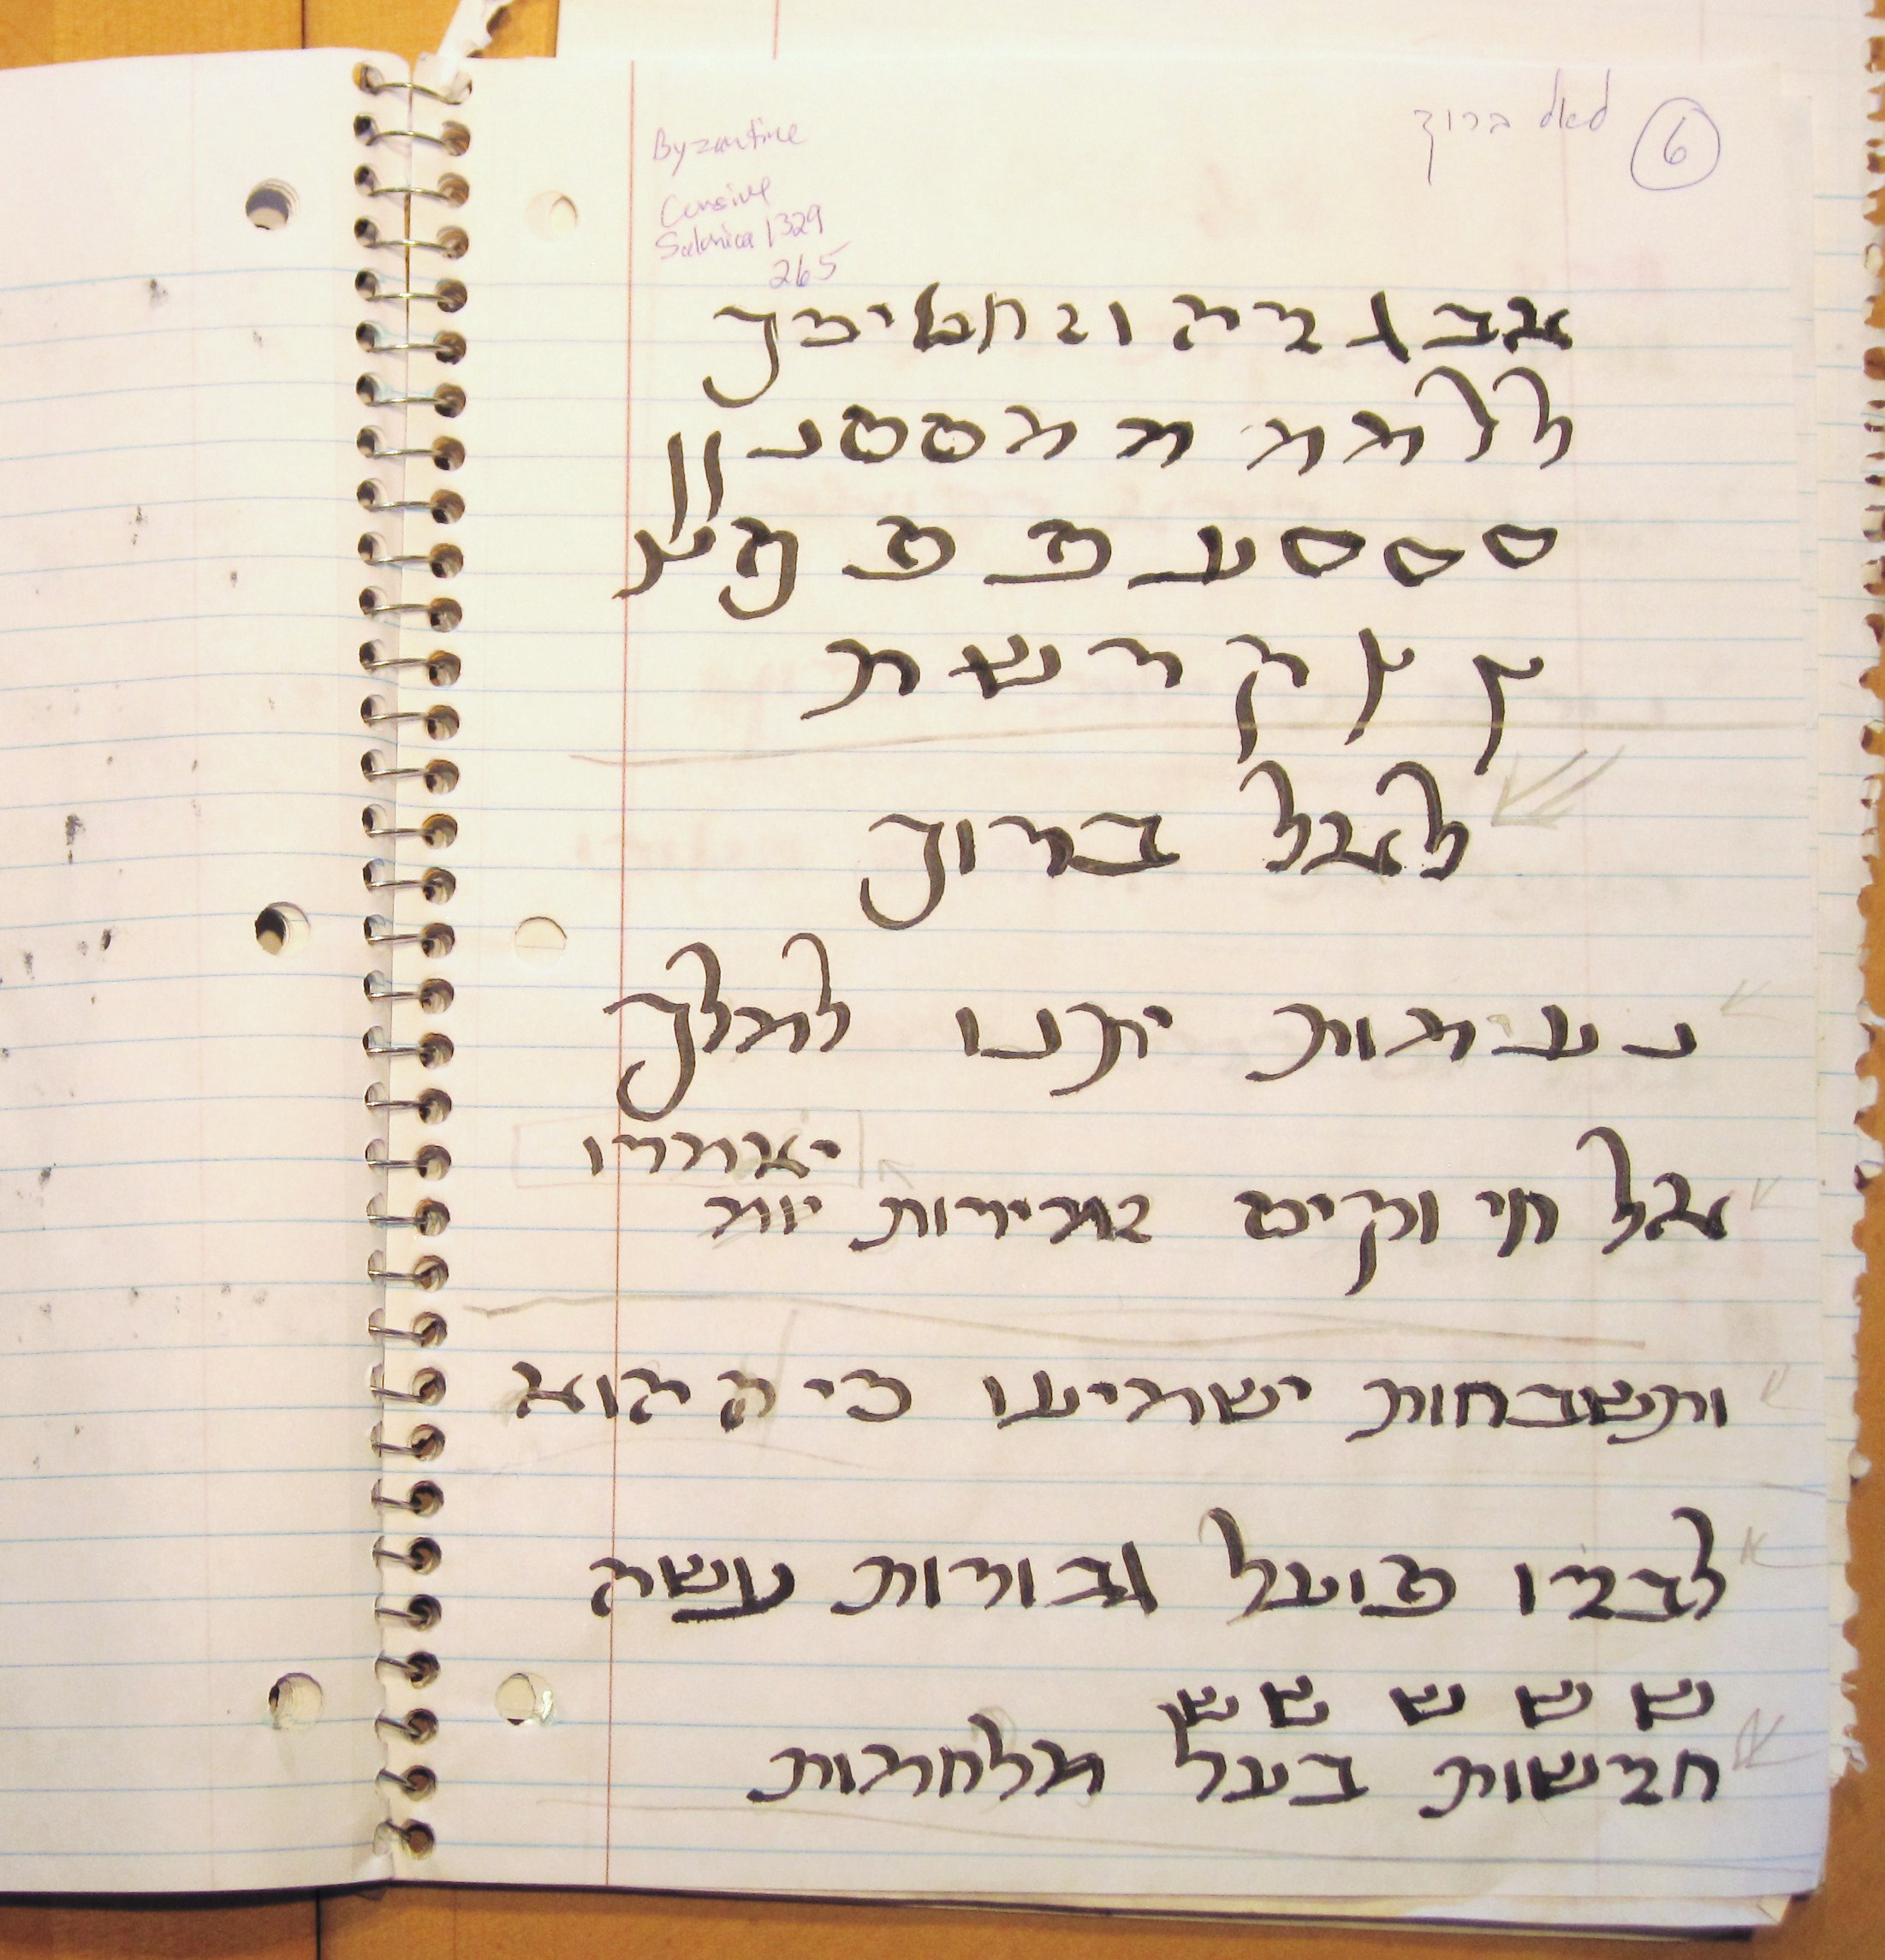 לאל ברוך 6
Byzantine
Cursive
Salonica 1329
265
אבגדהוזחטיכך
ללממממססנןן
ססספעפפףצ
ץץקרשת
לאל ברוך
נעימות יתנו למלך
יאמרו
אל חי וקים זמירות
ותשבחות ישמיעו כי ה הוא
לבדו פועל גבורות עשה
ש ש ש ש ש
חדשות בעל מלחמות